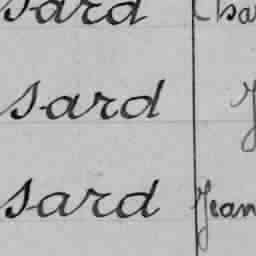 sard Cha
sard J
sard Jean